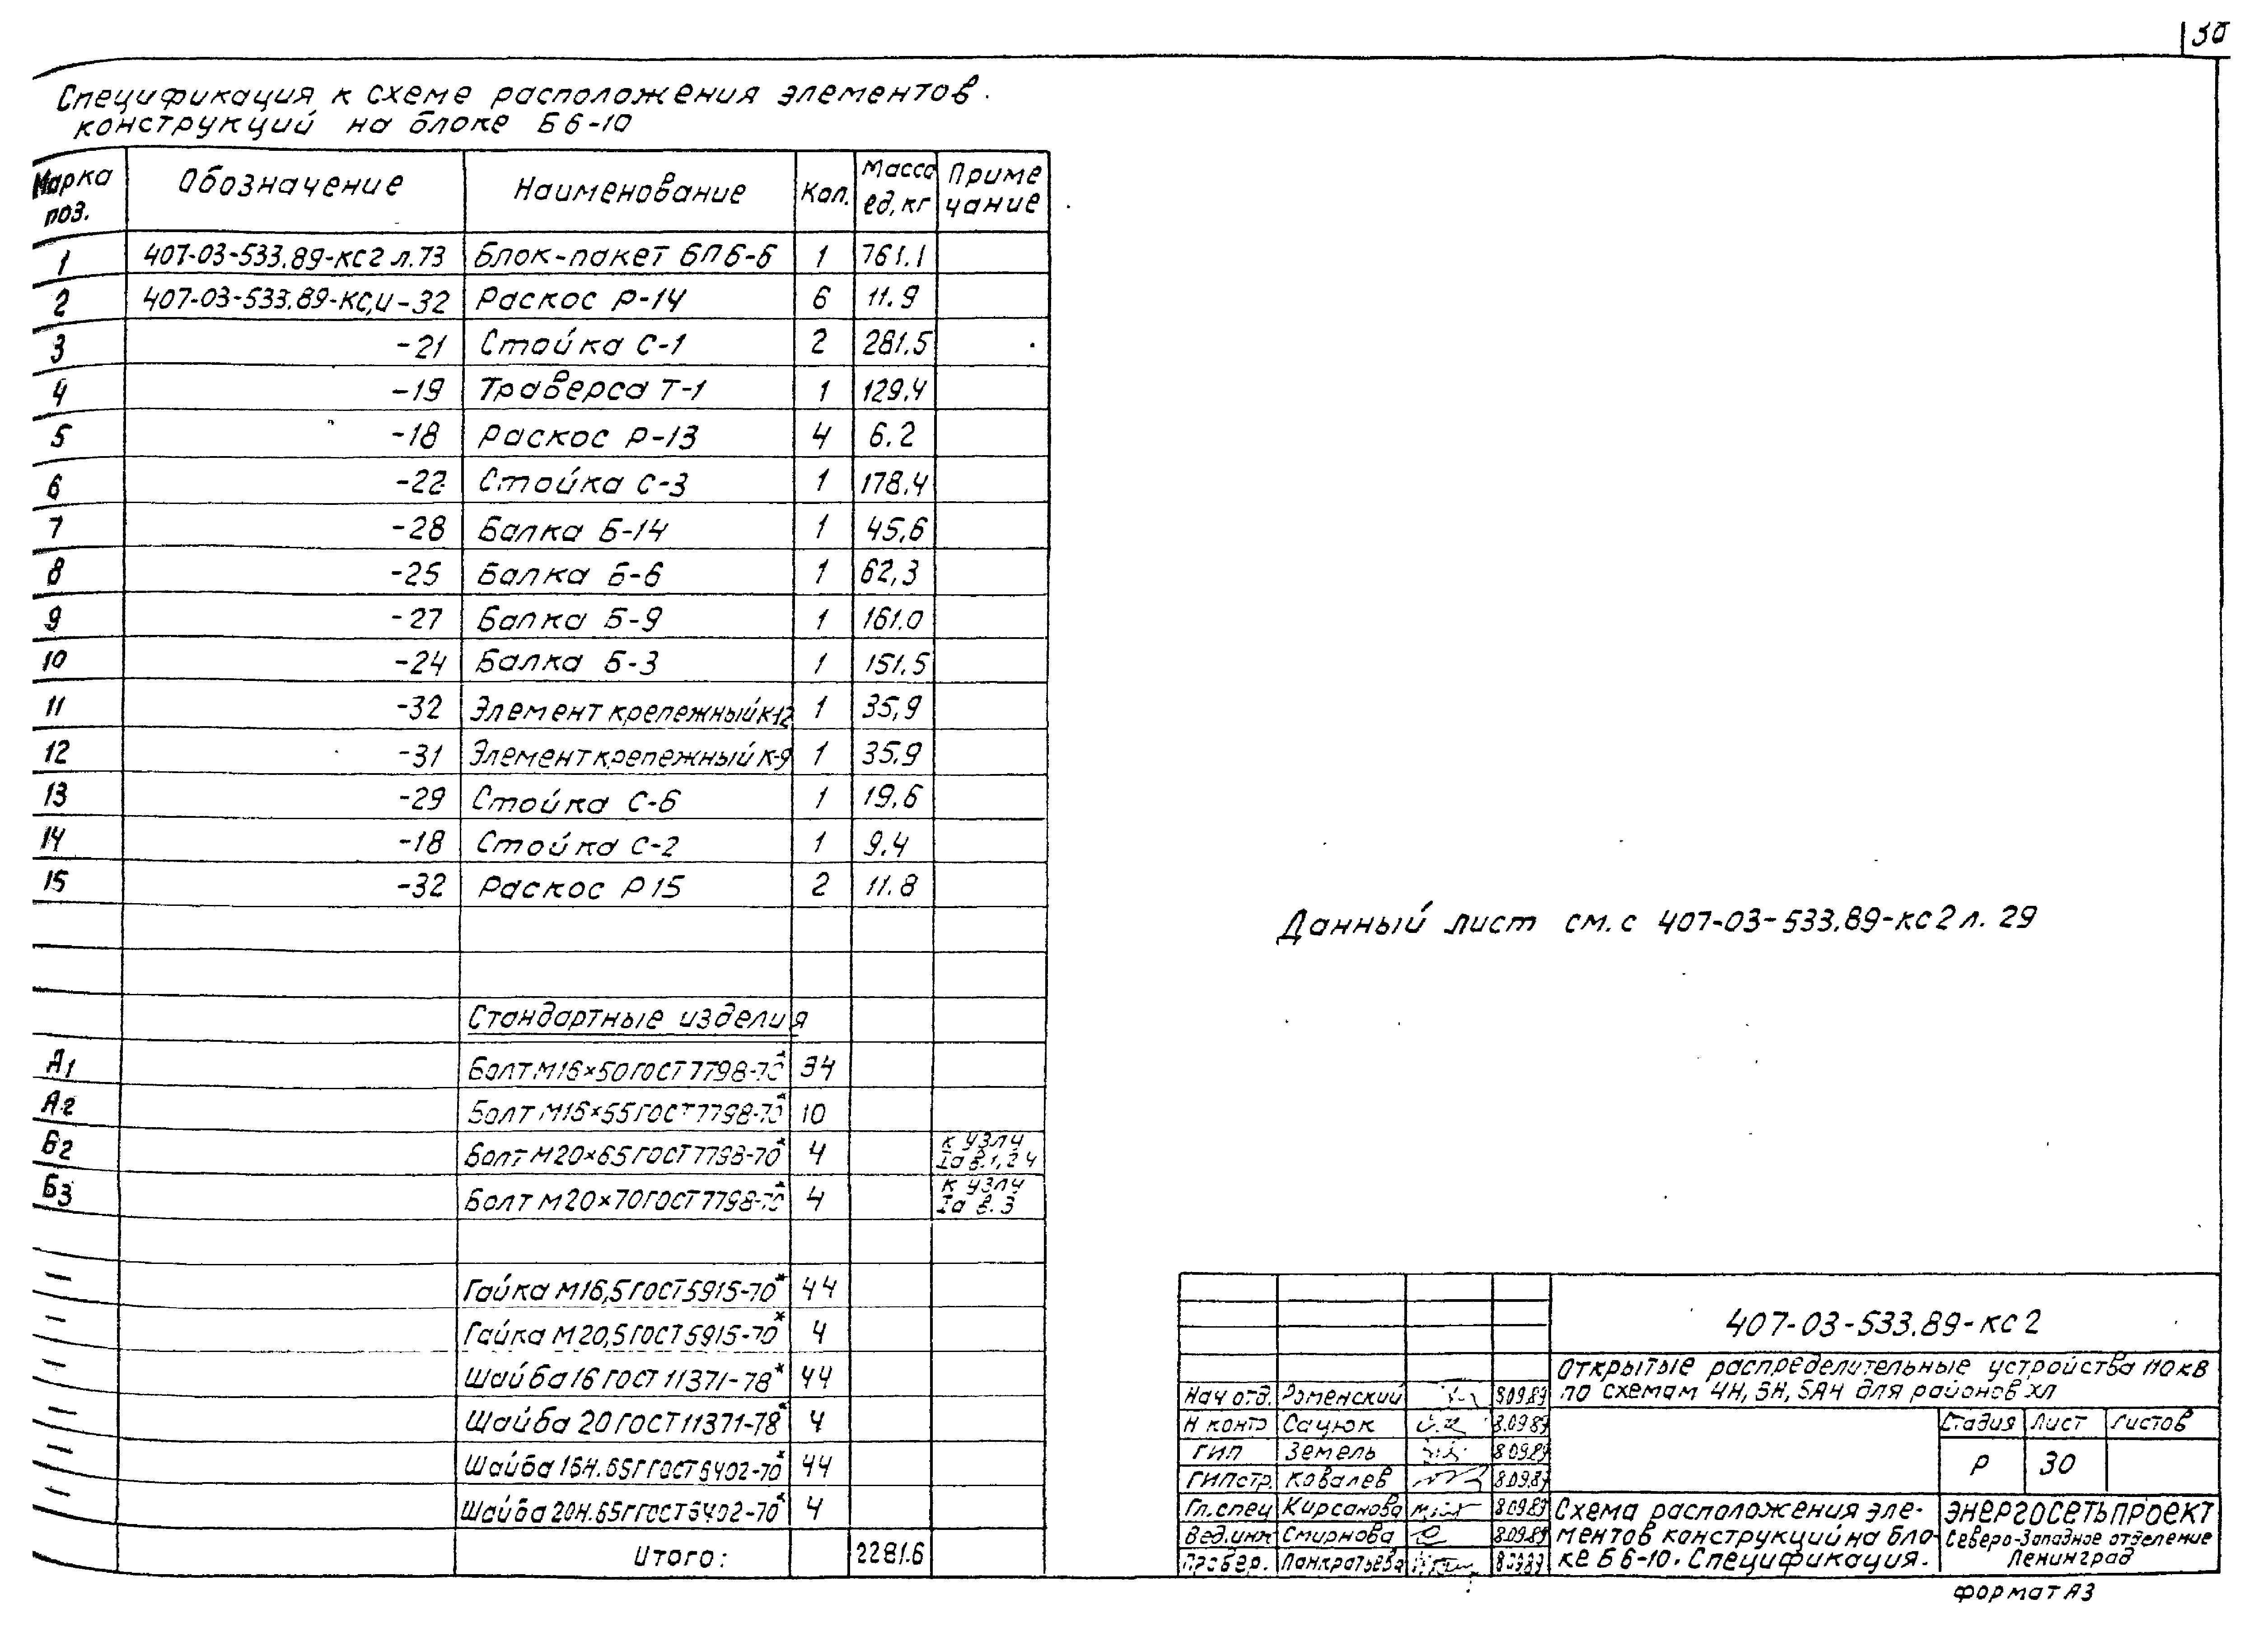 30
Спецификация к схеме расположения элементов
конструкций на блоке Б6-10
Марка поз. Обозначение Наименование Кол. Масса ед, кг Приме чание
1 407-03-533.89-КС2 л.73 Блок-пакет БПБ-6 1 761.1
2 407-03-533.89-КС,И-32 Раскос Р-14 6 11.9
3 -21 Стойка С-1 2 281.5
4 -19 Траверса Т-1 1 129.4
5 -18 Раскос Р-13 4 6.2
6 -22 Стойка С-3 1 178.4
7 -28 Балка Б-14 1 45,6
8 -25 Балка Б-6 1 62,3
9 -27 Балка Б-9 1 161.0
10 -24 Балка Б-3 1 151.5
11 -32 Элемент крепежный К-12 1 35,9
12 -31 Элемент крепежный К-9 1 35.9
13 -29 Стойка С-6 1 19.6
14 -18 Стойка С-2 1 9.4
15 -32 Раскос Р15 2 11.8
Стандартные изделия
А1 Болт М16×50 ГОСТ 7798-70* 34
А2 Болт М16×55 ГОСТ 7798-70* 10
Б2 Болт М20×65 ГОСТ 7798-70* 4 к узлу Iа в.1,2 4
Б3 Болт М20×70 ГОСТ 7798-70* 4 к узлу Iа в. 3
— Гайка М16,5 ГОСТ 5915-70* 44
— Гайка М20,5 ГОСТ 5915-70* 4
— Шайба 16 ГОСТ 11371-78* 44
— Шайба 20 ГОСТ 11371-78* 4
— Шайба 16Н.65Г ГОСТ 6402-70* 44
— Шайба 20Н.65Г ГОСТ 6402-70* 4
Итого: 2281.6
Данный лист см. с 407-03-533.89-КС2 л. 29
407-03-533.89-КС2
Открытые распределительные устройства 110 кв
по схемам 4Н, 5Н, 5АН для районов ХЛ
Нач отд. Роменский 8.09.89
Н контр Сацюк 8.09.89
ГИП Земель 8.09.89
ГИПстр. Ковалев 8.09.89
Гл.спец Кирсанова 8.09.89
Вед.инж Смирнова 8.09.89
Провер. Панкратьева 8.09.89
Стадия Лист Листов
Р 30
Схема расположения эле-
ментов конструкций на бло-
ке Б6-10. Спецификация.
ЭНЕРГОСЕТЬПРОЕКТ
Северо-Западное отделение
Ленинград
Формат А3